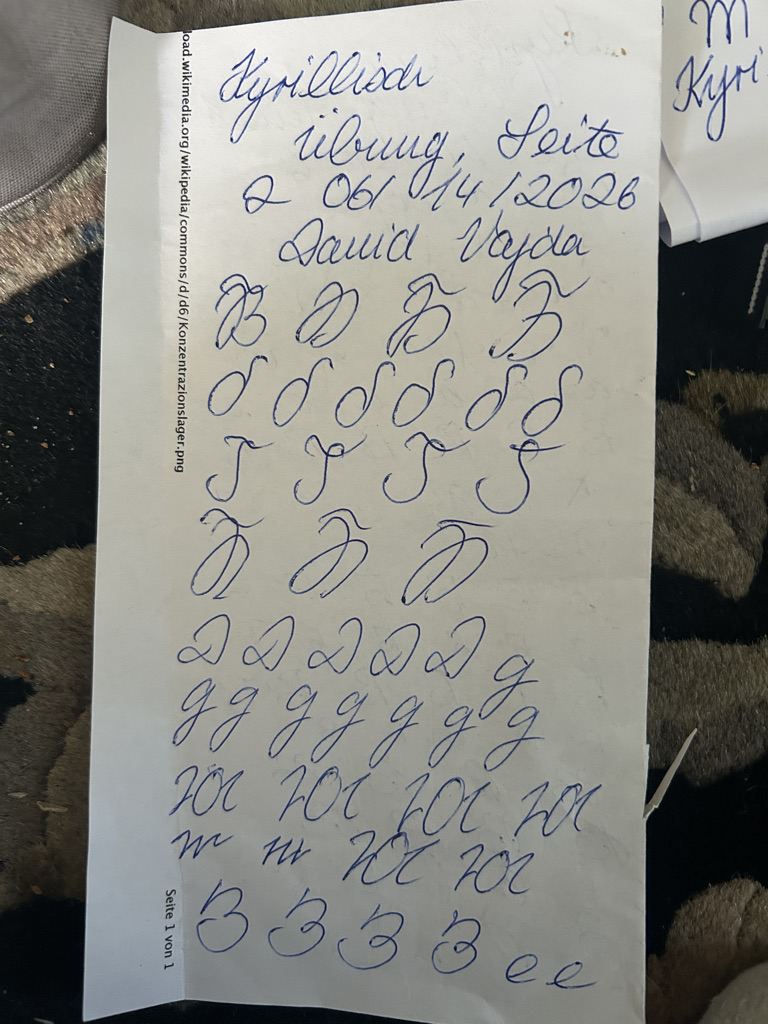 load.wikimedia.org/wikipedia/commons/d/d6/Konzentrazionslager.png
Kyrillisch
Übung, Seite
2 06/14/2026
David Vajda
Б Б Б Б
б б б б б б
Г Г Г Г
Б Б Б
Д Д Д Д Д д
д д д д д д д
Ж Ж Ж Ж
ж ж Ж Ж
З З З З е е
Seite 1 von 1
m
Kyri